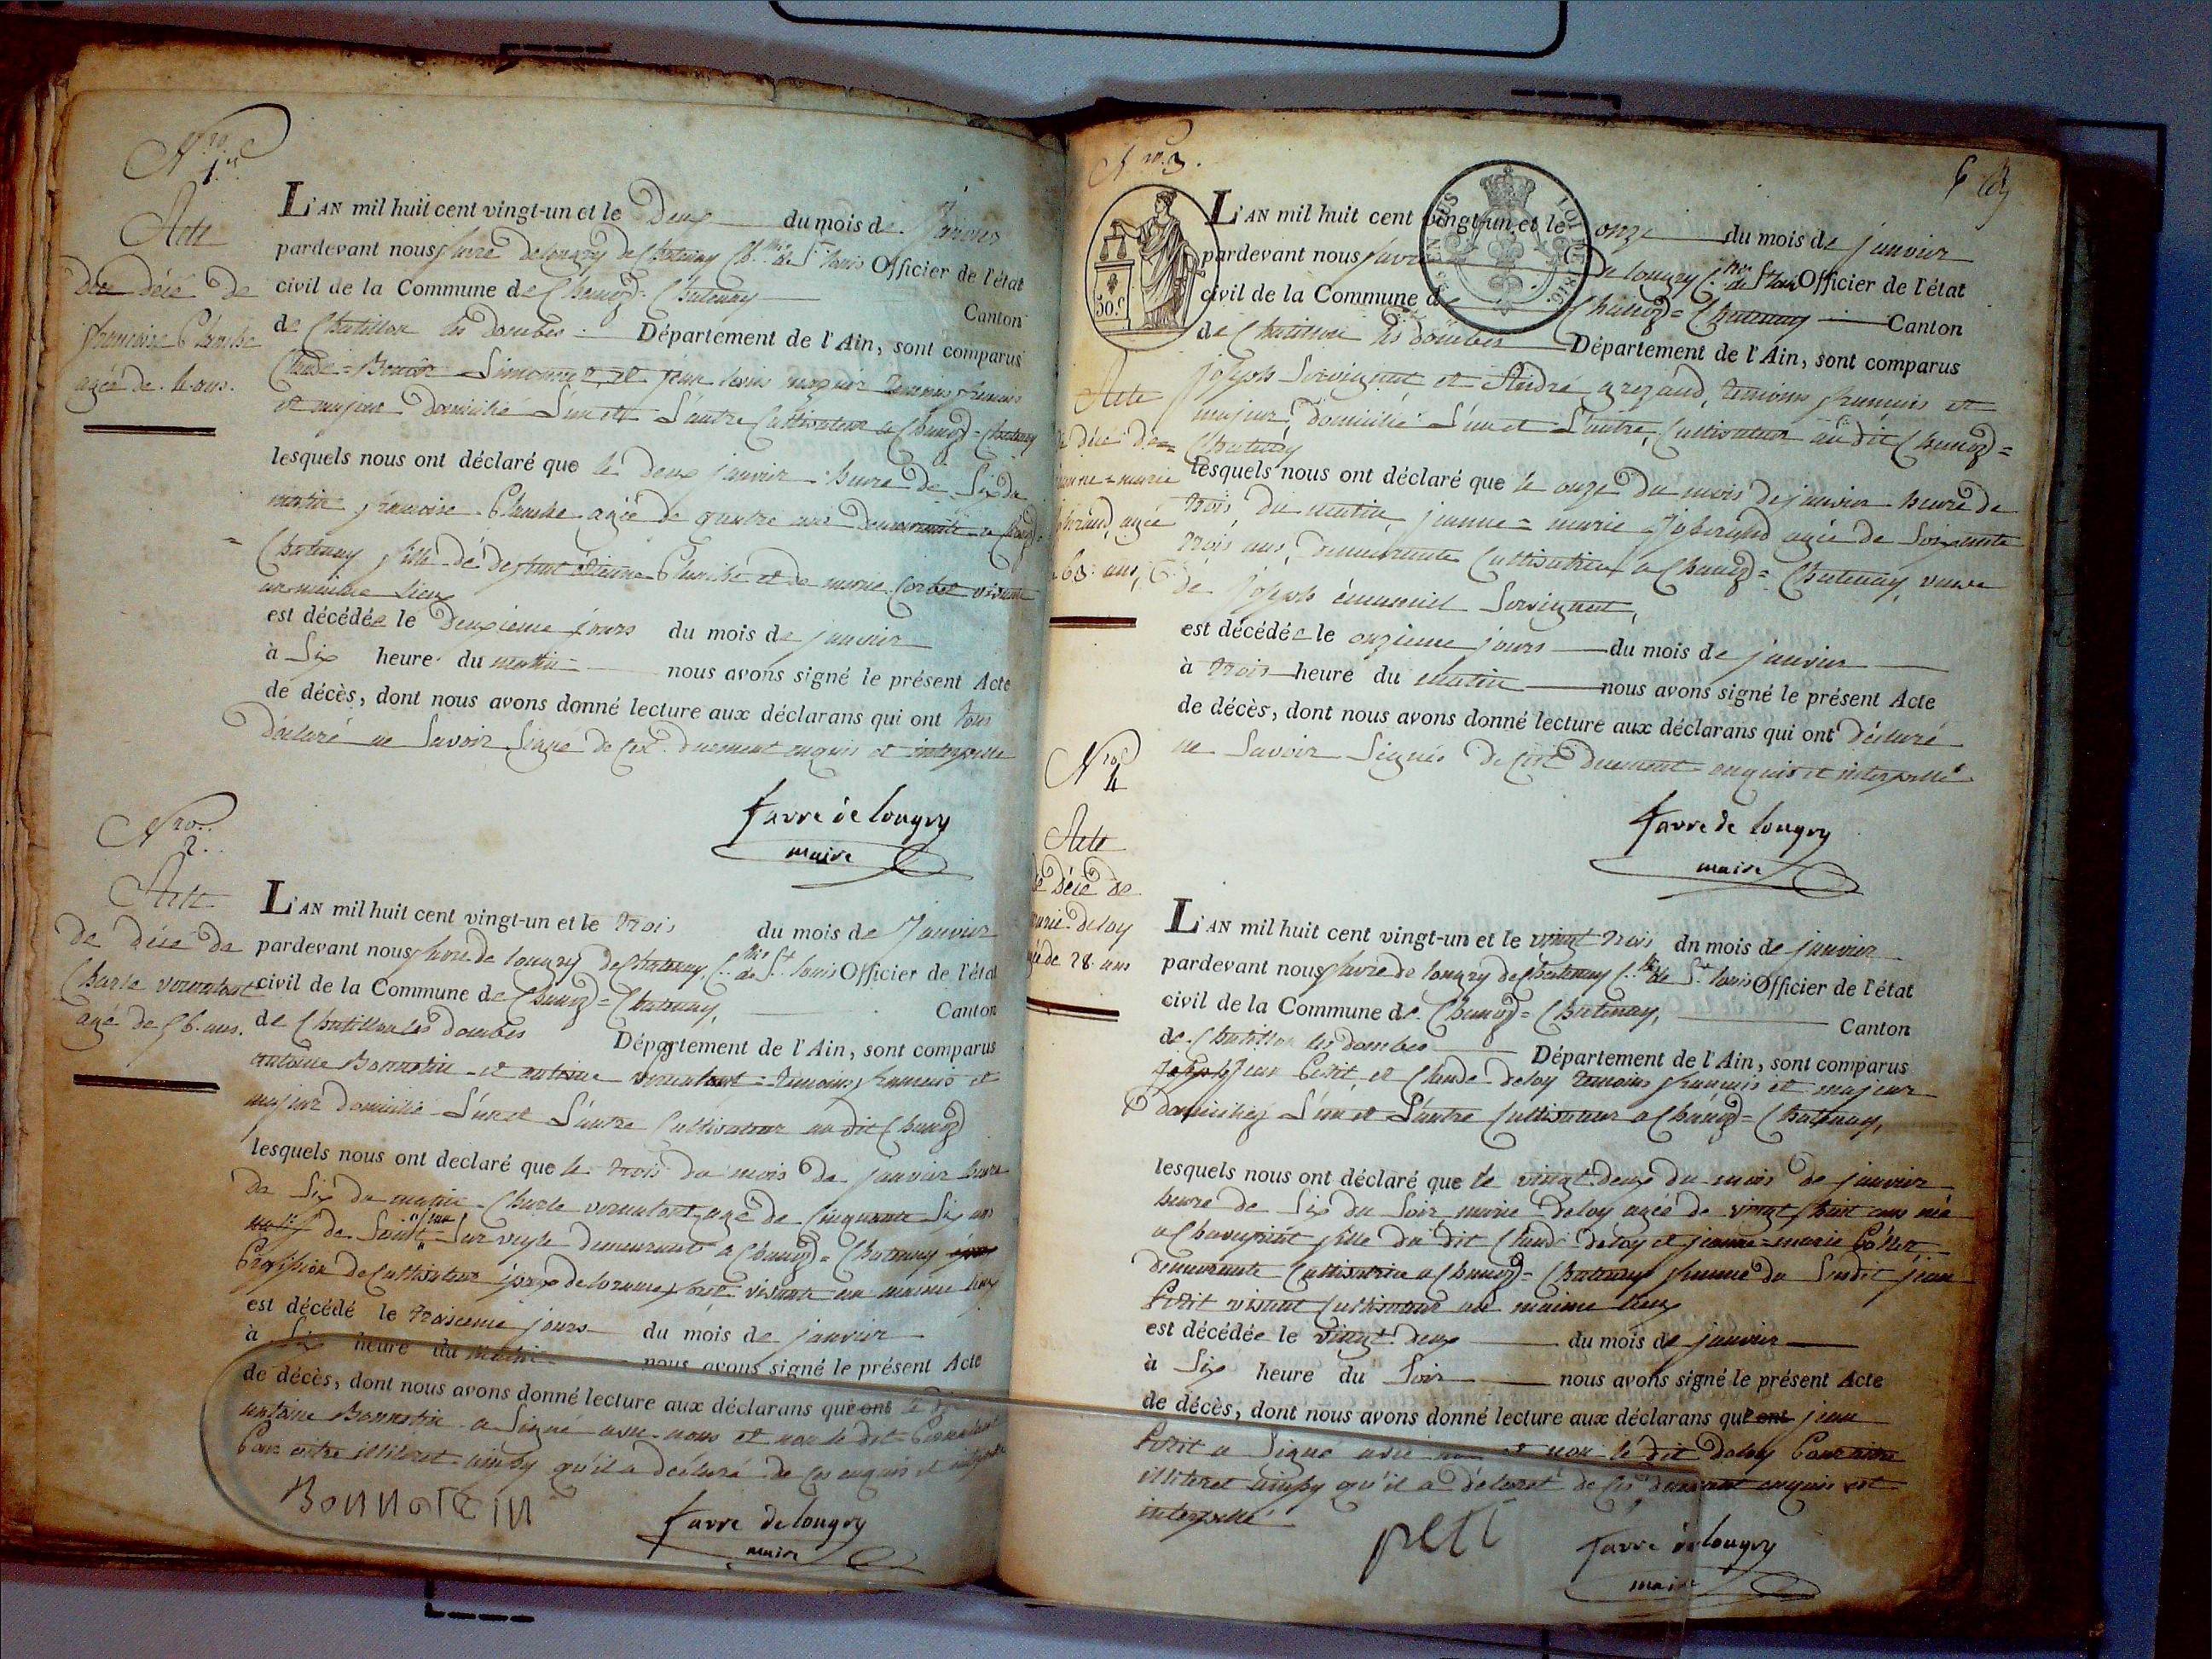 Nro. 1er
Acte
De décé de
françoise Planche
agée de 4 ans.
L'AN mil huit cent vingt-un et le Deux du mois de Janvier
pardevant nous favre delongry de Chatenay Ch. de St Louis Officier de l'état
civil de la Commune de Chanoz=Chatenay
Canton
de Chatillon les dombes Département de l'Ain, sont comparus
Claude=Benoit et jean louis temoins francais
et majeur domicilié L'un et L'autre Cultivateur a Chanoz=Chatenay
lesquels nous ont déclaré que le deux janvier heure de Six du
matin francoise Planche agée de quatre ans demeurante a Chanoz
=Chatenay fille de defunt étienne Planche et de marie Corbet vivante
au maime lieux
est décédée le Deuxieme jours du mois de janvier
à Six heure du matin nous avons signé le présent Acte
de décès, dont nous avons donné lecture aux déclarans qui ont tous
déclaré ne Savoir Signé de Ces duement enquis et interpellé
favre de longry
maire
Nro. 2.
Acte
De décé de
Charle
agé de 56. ans.
L'AN mil huit cent vingt-un et le trois du mois de Janvier
pardevant nous favre de longry de Chatenay C. de St. louis Officier de l'état
civil de la Commune de Chanoz=Chatenay,
Canton
de Chatillon les dombes Département de l'Ain, sont comparus
antoine Bonnotin et antoine temoins francais et
majeur domicilié L'un et L'autre Cultivateur au dit Chanoz
lesquels nous ont declaré que le trois du mois de janvier heure
de Six du matin Charle agé de Cinquante Six ans
natif de Saint jean Sur veyle demeurant a Chanoz=Chatenay
Profession de Cultivateur époux de vivante au maime lieux
est décédé le troisieme jours du mois de janvier
à Six heure du matin nous avons signé le présent Acte
de décès, dont nous avons donné lecture aux déclarans qui ont le dit
antoine Bonnotin a Signé avec nous et non le dit
Pour aitre illiteret ainsy qu'il a déclaré de Ces enquis et interpellé
Bonnotin
favre de longry
maire
Nro. 3.
Acte
de décé de=
jeanne=marie
agée
de 63. ans,
L'AN mil huit cent vingt-un et le onze du mois de janvier
pardevant nous favre de longry C. de St Louis Officier de l'état
civil de la Commune de Chanoz=Chatenay Canton
de Chatillon les dombes Département de l'Ain, sont comparus
joseph et André temoins francais et
majeur, domicilié L'un et L'autre, Cultivateur au dit Chanoz=
Chatenay
lesquels nous ont déclaré que le onze du mois de janvier heure de
trois du matin jeanne=marie agée de Soixante
trois ans, demeurante Cultivatrice a Chanoz=Chatenay, veuve
de joseph
est décédée le onzieme jours du mois de janvier
à trois heure du matin nous avons signé le présent Acte
de décès, dont nous avons donné lecture aux déclarans qui ont déclaré
ne Savoir Signés de Ces duement enquis et interpellé
favre de longry
maire
Nro 4
Acte
de décé de
marie deloy
agée de 28. ans
L'AN mil huit cent vingt-un et le vingt trois du mois de janvier
pardevant nous favre de longry de Chatenay C. de St. louis Officier de l'état
civil de la Commune de Chanoz=Chatenay, Canton
de Chatillon les dombes Département de l'Ain, sont comparus
joseph jean Petit, et Claude deloy temoins francais et majeur
domiciliés L'un et L'autre Cultivateur a Chanoz=Chatenay,
lesquels nous ont déclaré que le vingt deux du mois de janvier
heure de Six du Soir marie deloy agée de vingt huit ans née
a Chaveyriat fille du dit Claude deloy et jeanne=marie
demeurante Cultivatrice a Chanoz=Chatenay femme du Susdit jean
Petit vivant Cultivateur au maime lieux
est décédée le vingt deux du mois de janvier
à Six heure du Soir nous avons signé le présent Acte
de décès, dont nous avons donné lecture aux déclarans qui ont jean
Petit a Signé avec nous et non le dit deloy Pour aitre
illiteret ainsy qu'il a déclaret de Ces duement enquis et
interpellé
petit
favre de longry
maire